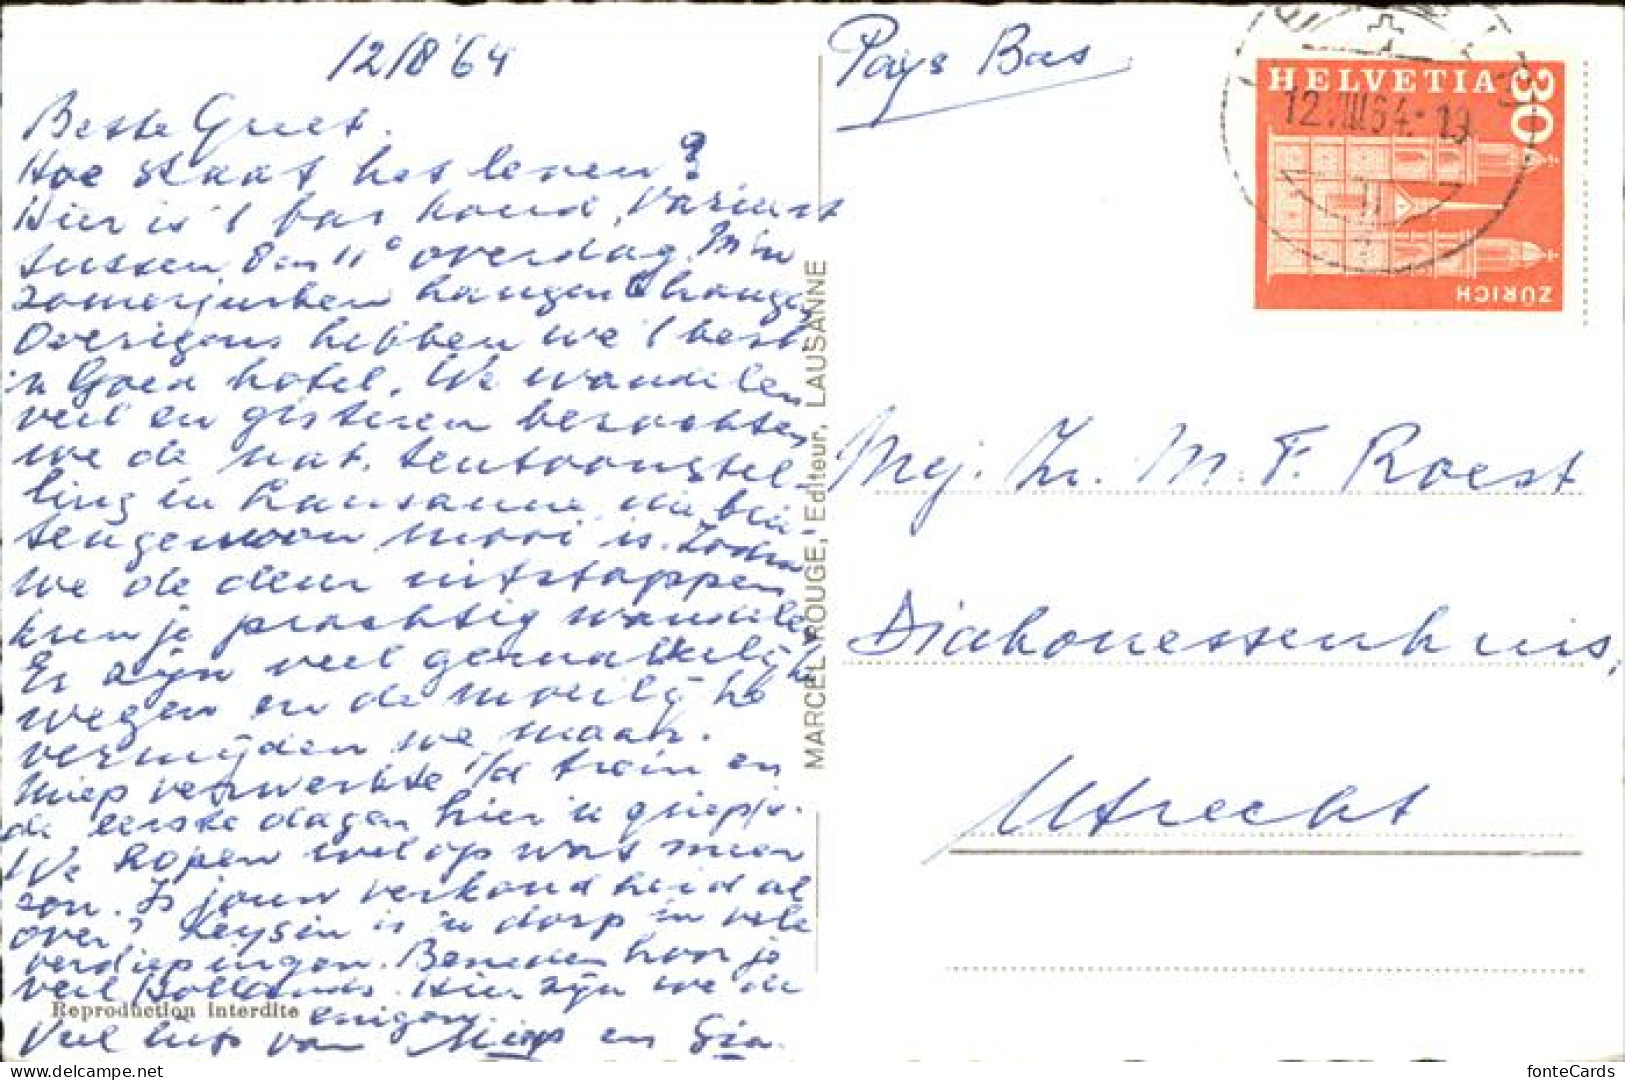 12/8 '64
Beste Greet.
Hoe staat het leven?
Hier is 't bar koud, Varieert
tussen 8 en 11° overdag. M'n
zomerjurken hangen & hangen
Overigens hebben we 't best.
'n Goed hotel. We wandelen
veel en gisteren bezochten
we de nat. tentoonstel-
ling in Lausanne, die bui-
tengewoon mooi is. Zodra
we de deur uitstappen
kun je prachtig wandelen
Er zijn veel gemakkelijke
wegen en de moeilijke
vermijden we maar.
Miep verwerkte i/d trein en
de eerste dagen hier 'n griepje.
We hopen wel op wat meer
zon. Is jouw verkoudheid al
over? Leysin is 'n dorp in vele
verdiepingen. Beneden hoor je
veel Hollands. Hier zijn we de
enigen
Veel liefs van Miep en Gia.
Reproduction interdite
MARCEL ROUGE, Editeur, LAUSANNE
Pays Bas
HELVETIA 30
12.VIII.64.-19
ZÜRICH
Mej. Zr. M. F. Roest
Diakonessenhuis,
Utrecht
fonteCards